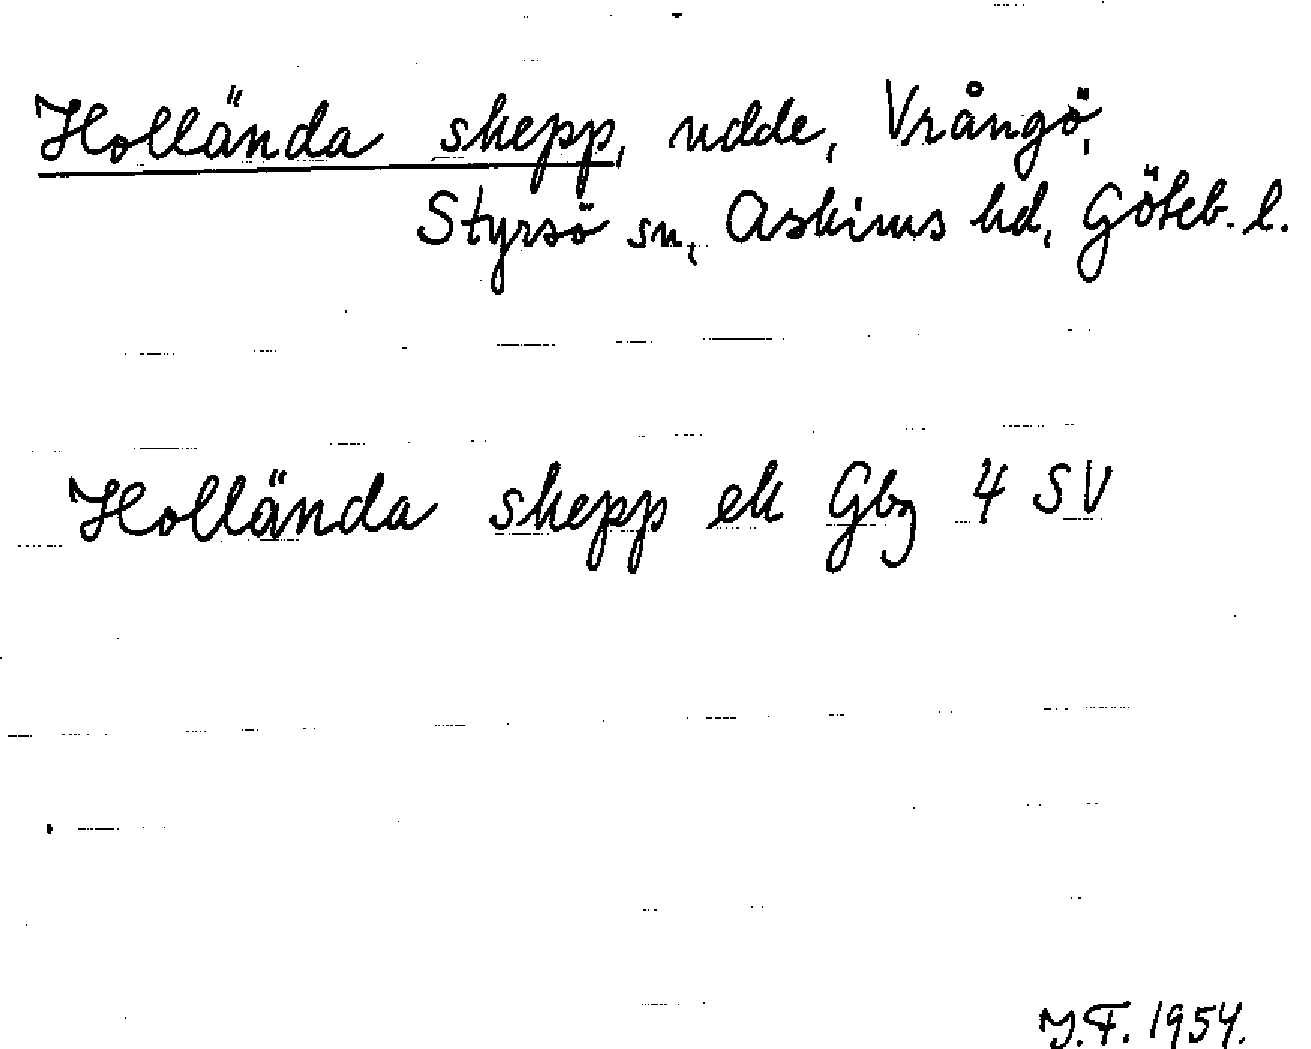 Hollända skepp, udde, Vrångö,
Styrsö sn, Askims hd, Göteb. l.
Hollända skepp ek Gbg 4 SV
J.F. 1954.